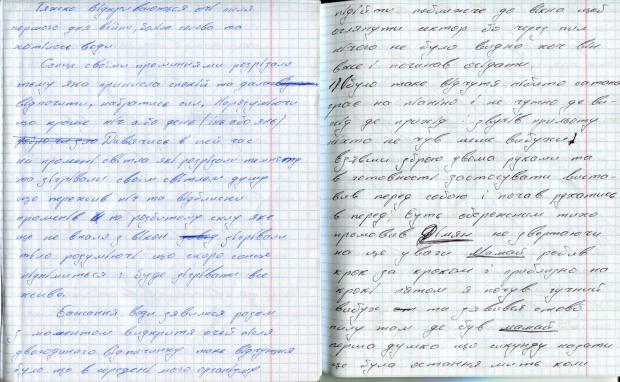 Тяжко відкриваються очі після
першого дня війни, болить голова та
хотілось води.
Сонце своїми променями розрізали
тьму яка принесла спокій та дала
відпочити, набратись сил. Порозуміючи
що краще ніч або день (інь або янь)
Дивлячись в цей час
на промені світла які розрізали темноту
та зігрівали своїм світлом душу
що пережив ніч та відблиски
променів по розбитому склу яке
ще не впало з вікон зігрівали
тіло розуміючі що скоро сонце
підніметься і буде зігрівати все
живе.
Бажання води зявилося разом
з моментом відкриття очей після
двогодинного відпочинку таке відчуття
було що в середені мого організму
підійти поближче до вікна щоб
оглянути сектор бо через пил
нічого не було видно хоч він
вже і починав осідати
було таке відчуття нібито сатана
грає на піаніно і не чутно де ви-
хід де прихід і звуків прильоту
ніхто не чув лише вибухи
взявши зброю двома руками та
в готовності застосувати виста-
вив перед собою і почав рухатись
в перед, буть обережним тихо
промовив Дімян не звертаючи
на це уваги Мамай робив
крок за кроком і приблизно на
крокі пятом я почув гучний
вибух та зявився стовб
пилу там де був мамай
перша думка цю секунду назад
це була остання мить коли